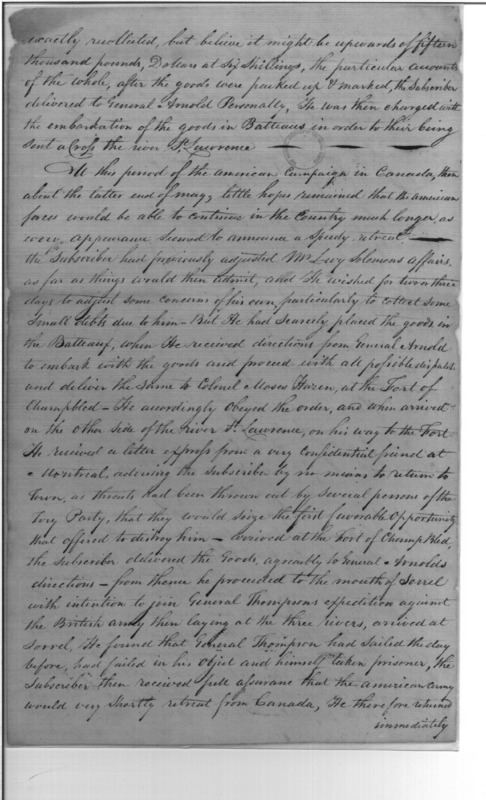 exactly recollected, but believe it might be upwards of fifteen
thousand pounds, Dollars at Six Shillings, the particular amounts
of the whole, after the goods were packed up & marked, the Subscriber
delivered to General Arnold Personally, He was then charged with
the embarkation of the goods in Batteaus in order to their being
sent aCross the river St. Lawrence
At this period of the american Campaign in Canada, then
about the latter end of may, little hopes remained that the american
forces would be able to continue in the Country much longer, as
every appearance seemed to announce a speedy retreat
the Subscriber had previously adjusted Mr. Levy Solomons affairs,
as far as things would then admit, and He wished for two or three
days to adjust some concerns of his own, particularly to collect some
small debts due to him - But He had scarcely placed the goods in
the Batteaus, when He received directions from General Arnold
to embark with the goods and proceed with all possible dispatch
and deliver the same to Colonel Moses Hazen, at the Fort of
Chamblee - He accordingly obeyed the order, and when arrived
on the other side of the river St. Lawrence, on his way to the Fort
He received a letter express from a very Confidential friend at
Montreal, advising the Subscriber by no means to return to
Town, as threats had been thrown out by several persons of the
Tory Party, that they would seize the first favorable Opportunity
that offered to destroy him - arrived at the Fort of
the Subscriber delivered the Goods, agreeably to General Arnolds
directions - from thence he proceeded to the mouth of Sorrel
with intention to join General Thompsons expedition against
the British army then laying at the three rivers, arrived at
Sorrel, He found that General Thompson had sailed the day
before, had failed in his Object and himself taken prisoner, the
Subscriber then received full assurance that the american army
would very shortly retreat from Canada, He therefore returned
immediately